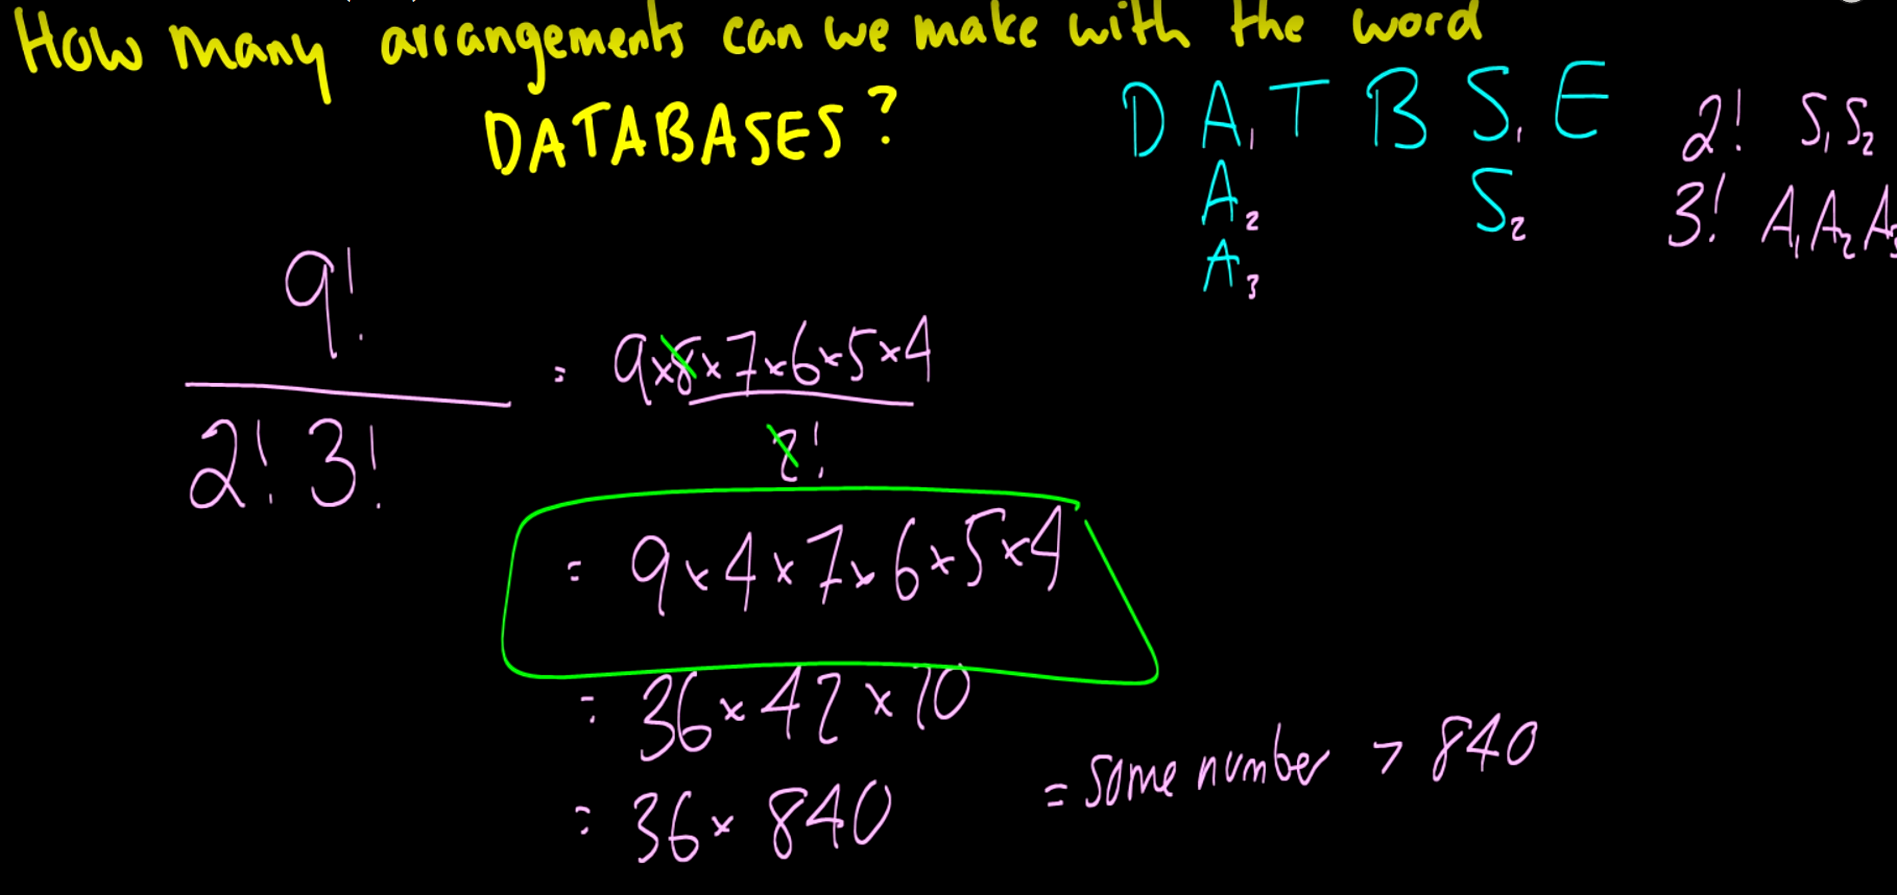 How many arrangements can we make with the word
DATABASES?
D A₁ T B S₁ E
A₂ S₂
A₃
2! S₁S₂
3! A₁A₂A₃
9!
2! 3!
= 9×8×7×6×5×4
2!
= 9×4×7×6×5×4
= 36×42×20
= 36×840
= some number > 840